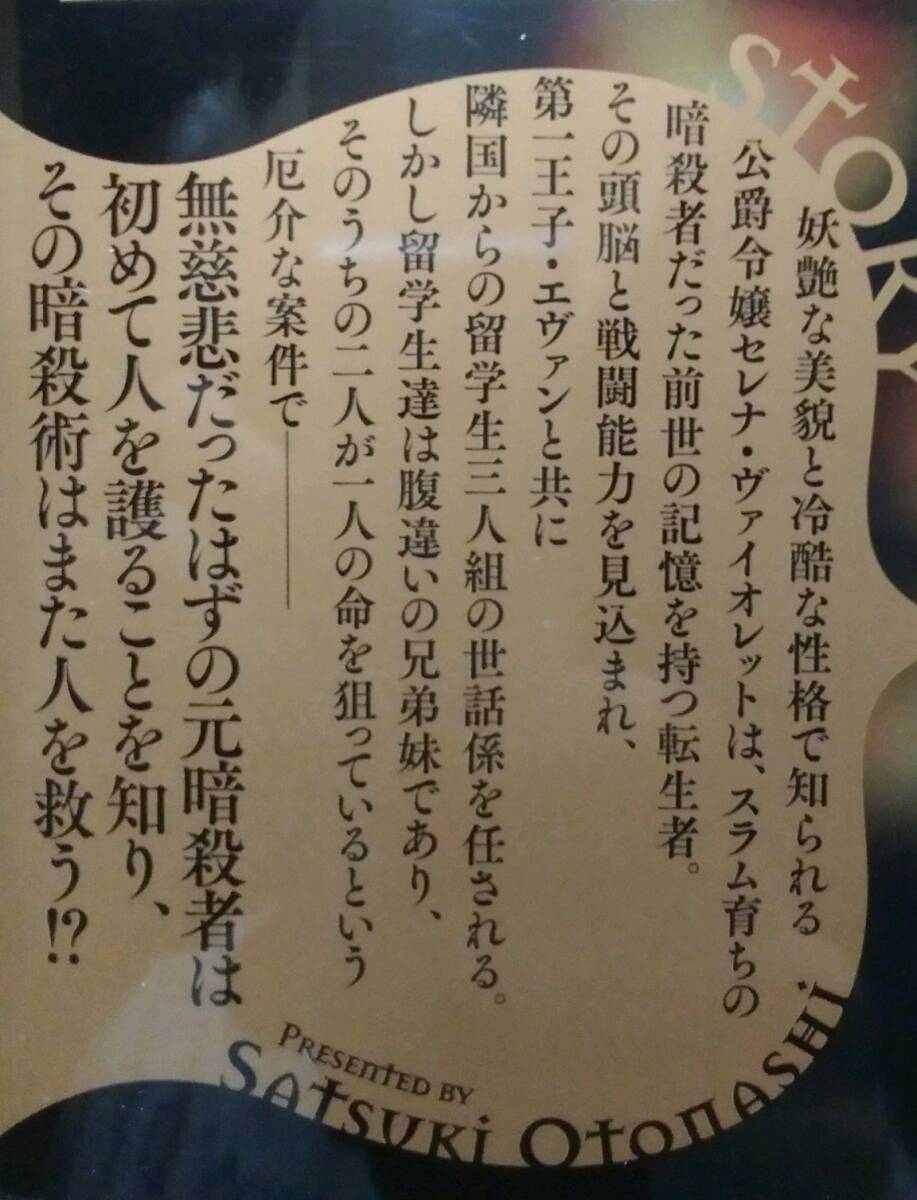 STORY
妖艶な美貌と冷酷な性格で知られる
公爵令嬢セレナ・ヴァイオレットは、スラム育ちの
暗殺者だった前世の記憶を持つ転生者。
その頭脳と戦闘能力を見込まれ、
第一王子・エヴァンと共に
隣国からの留学生三人組の世話係を任される。
しかし留学生達は腹違いの兄弟妹であり、
そのうちの二人が一人の命を狙っているという
厄介な案件で――
無慈悲だったはずの元暗殺者は
初めて人を護ることを知り、
その暗殺術はまた人を救う!?
PRESENTED BY
SATSUKI OTONASHI